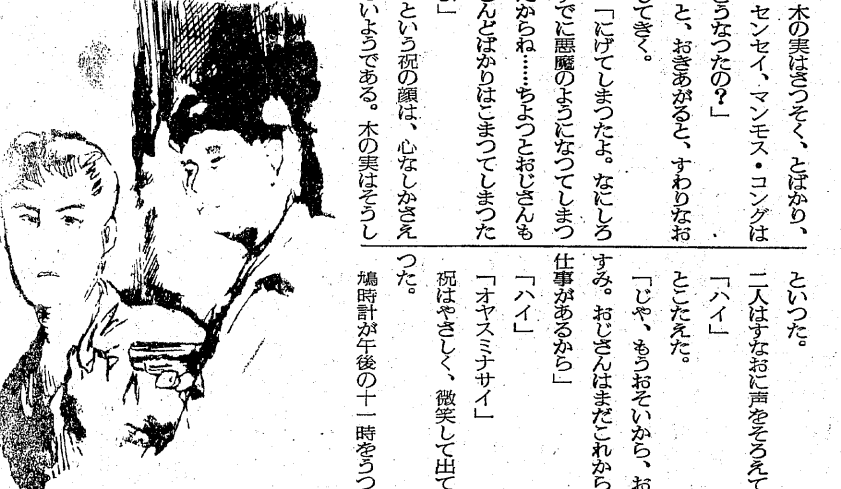 木の実はさつそく、とばかり、
センセイ、マンモス・コングは
うなつたの？」
と、おきあがると、すわりなお
してきく。
「にげてしまつたよ。なにしろ
でに悪魔のようになつてしまつ
からね……ちよつとおじさんも
んどばかりはこまつてしまつた
」
という祝の顔は、心なしかさえ
いようである。木の実はそうし
といつた。
二人はすなおに声をそろえて
「ハイ」
とこたえた。
「じや、もうおそいから、お
すみ。おじさんはまだこれから
仕事があるから」
「ハイ」
「オヤスミナサイ」
祝はやさしく、微笑して出て
つた。
鳩時計が午後の十一時をうつ